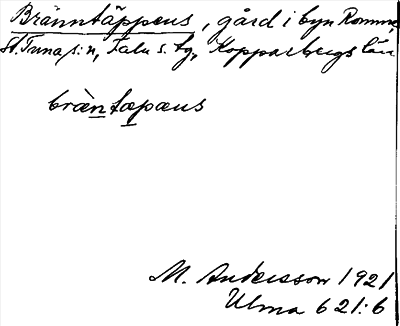 Bränntäppens, gård i byn Romme,
St. Tuna s:n, Falu s. tg, Kopparbergs län
bræ̀ntæpæns
M. Andersson 1921
Ulma 621:6